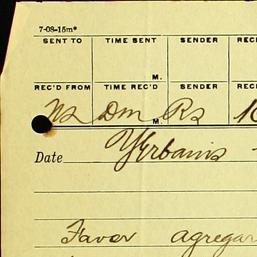 7-08-15m*
SENT TO TIME SENT SENDER REC
M.
REC'D FROM TIME REC'D SENDER REC
Ns Dm M. Rs
Date Yrbanis
Favor agregar